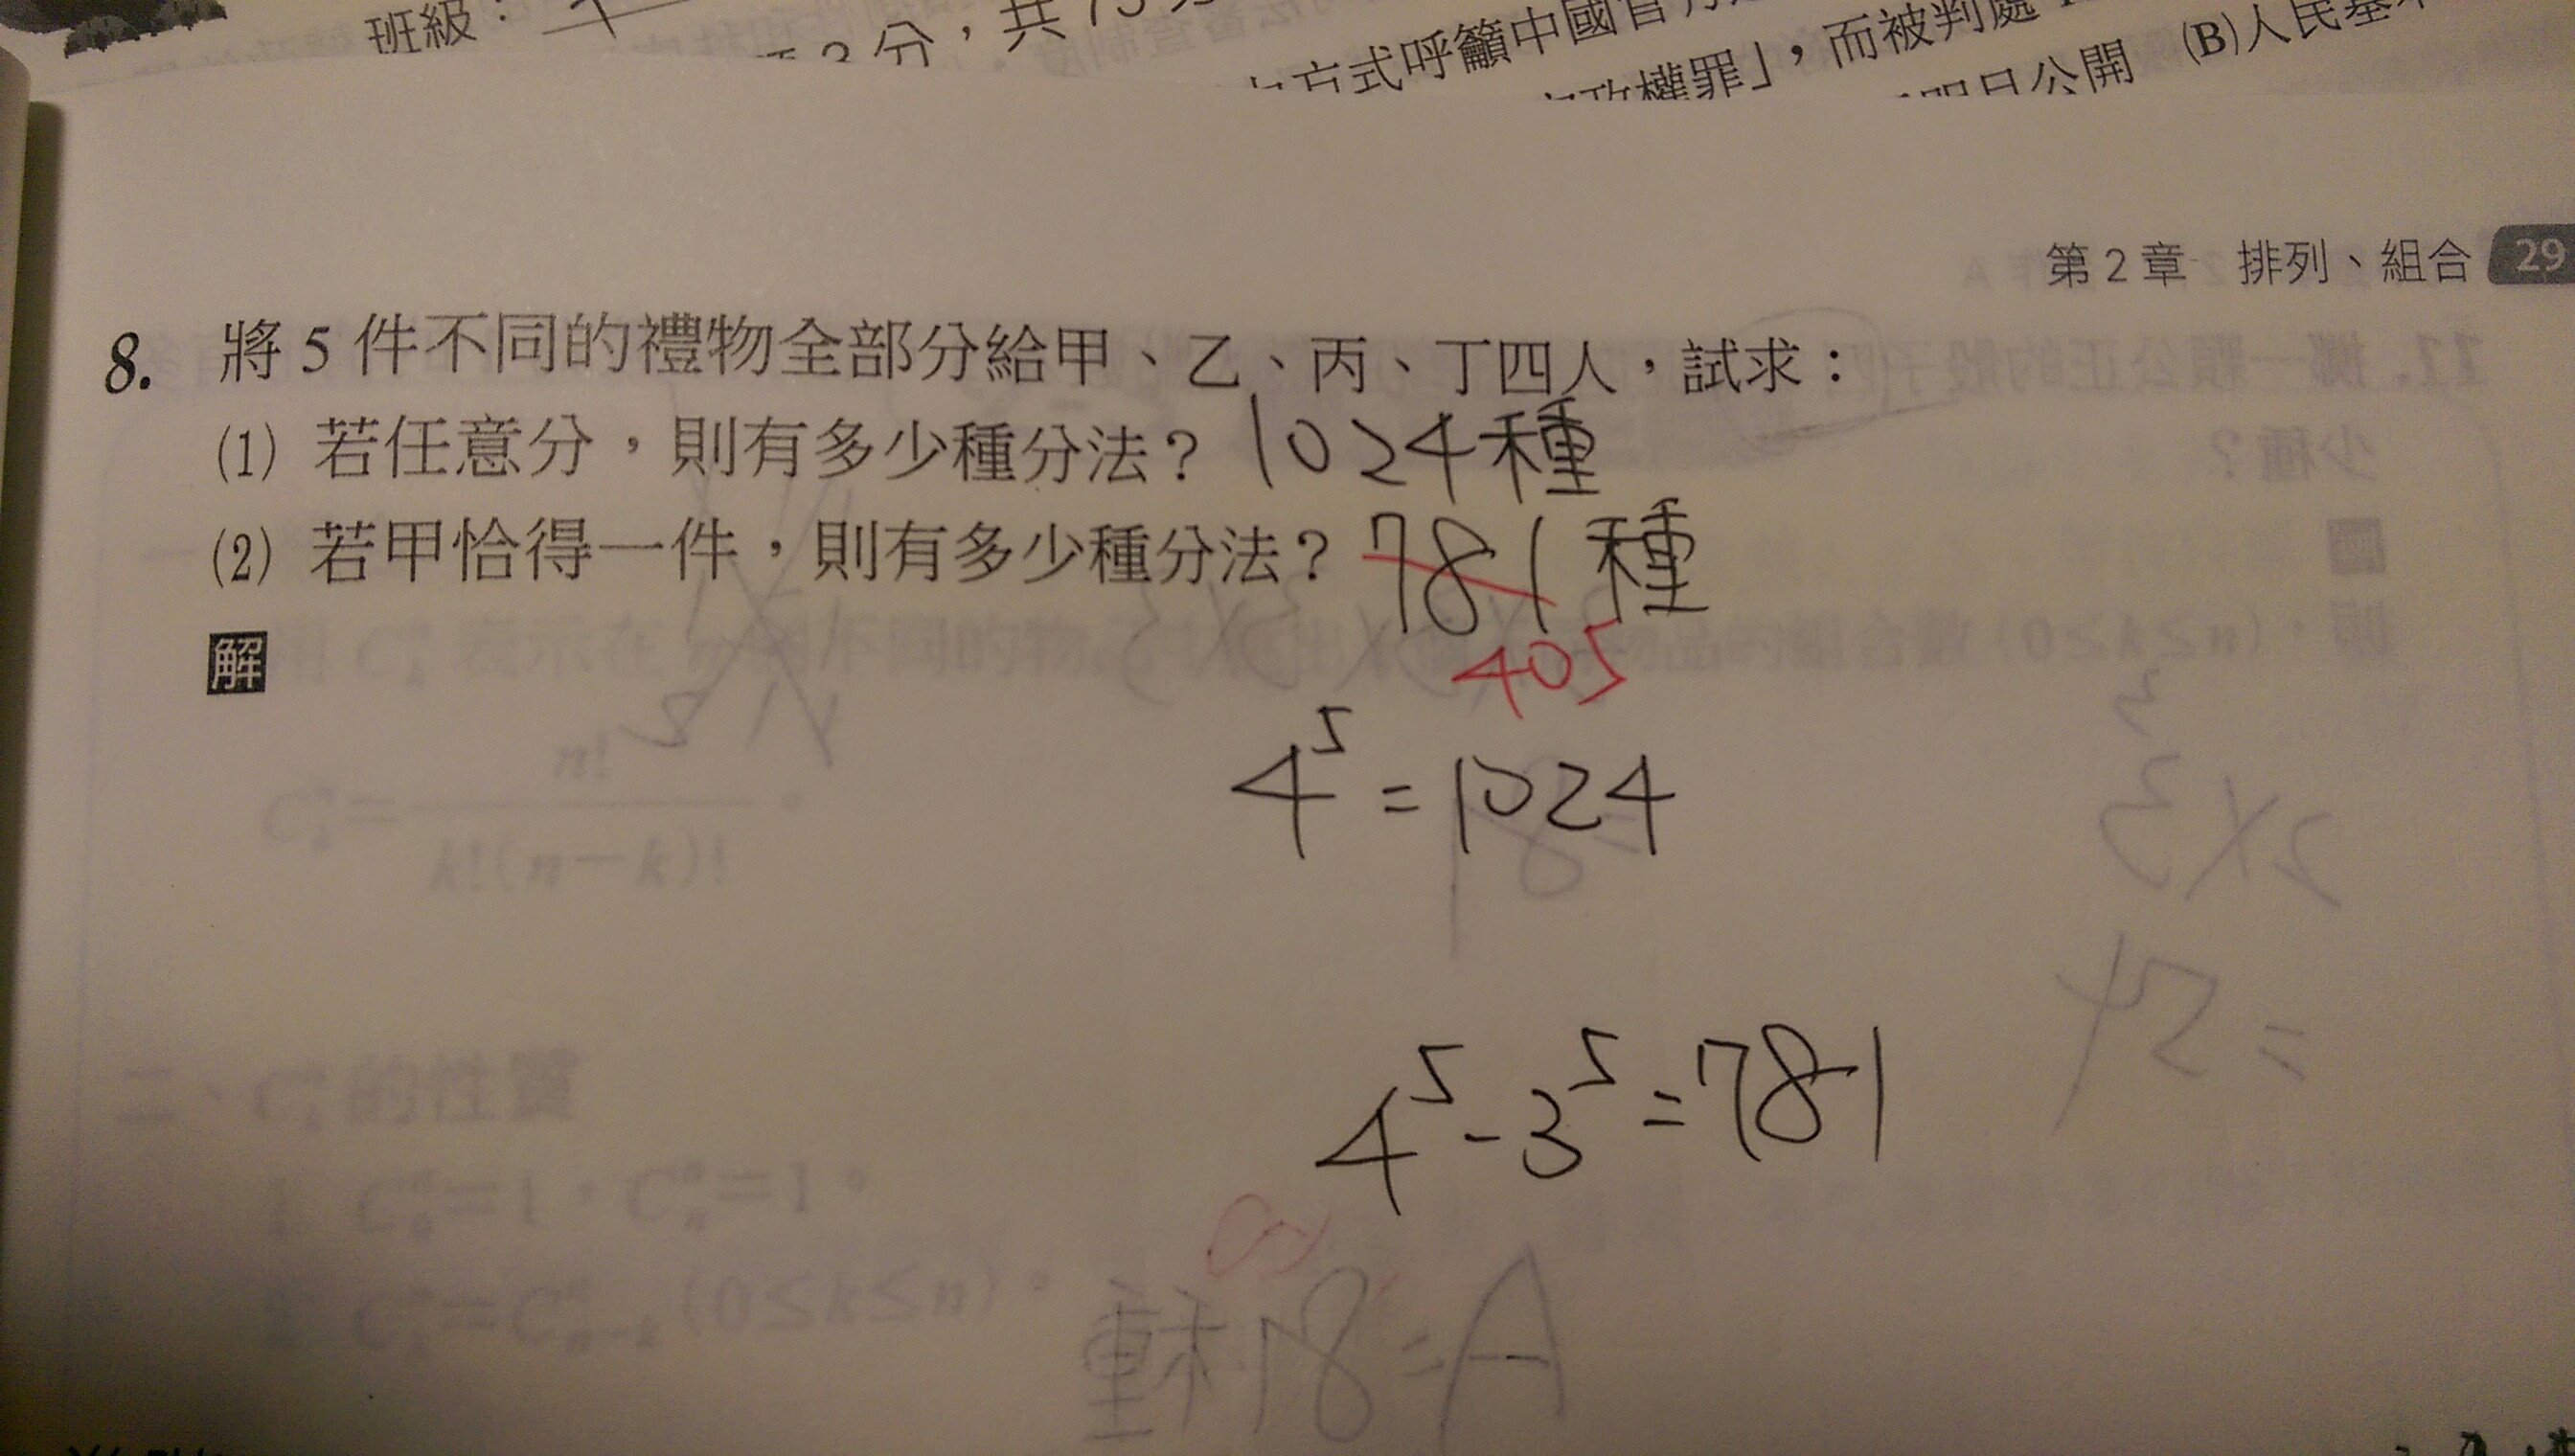 班級：
3 分，共
方式呼籲中國官方
政權罪」，而被判處
明日公開 (B)人民基本
第 2 章 排列、組合 29
8. 將 5 件不同的禮物全部分給甲、乙、丙、丁四人，試求：
(1) 若任意分，則有多少種分法？ 1024種
(2) 若甲恰得一件，則有多少種分法？ 781種
405
解
4^5 = 1024
4^5 - 3^5 = 781